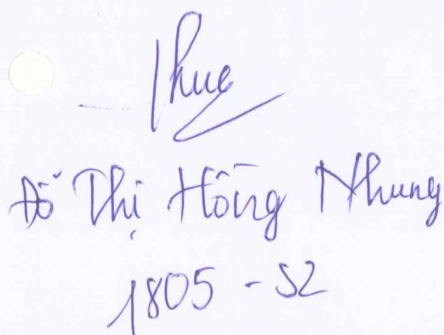 Nhung
Đỗ Thị Hồng Nhung
1805 - S2